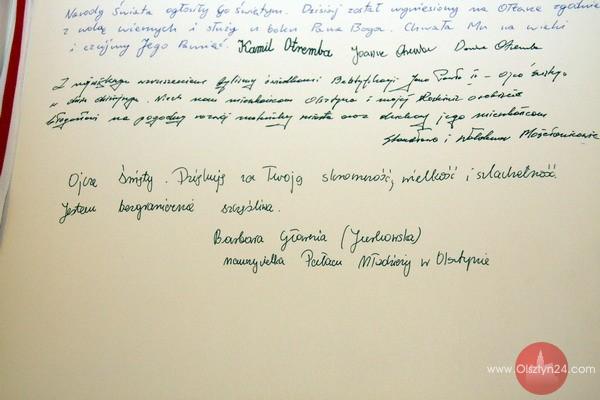 Narody Świata ogłosiły Go Świętym. Dzisiaj został wyniesiony na Ołtarze zgodnie
z wolą wiernych i służy u bolen Pana Boga. Chwała Mu na wieki
i czujmy Jego Pamięć. Kamil Otremba Joanna Otremba Otremba
Z największym wzruszeniem byliśmy świadkami Beatyfikacji Jana Pawła II - Ojca Świętego
w dniu dzisiejszym. Niech nam mieszkańcom Olsztyna i mojej Rodzinie
błogosławi na pogodny rozwój miasta oraz jego mieszkańcom
i
Ojcze Święty. Dziękuję za Twoją skromność, wielkość i szlachetność.
Jestem bezgranicznie szczęśliwa.
Barbara Głownia (Jurkowska)
nauczycielka Pałacu Młodzieży w Olsztynie
www.Olsztyn24.com